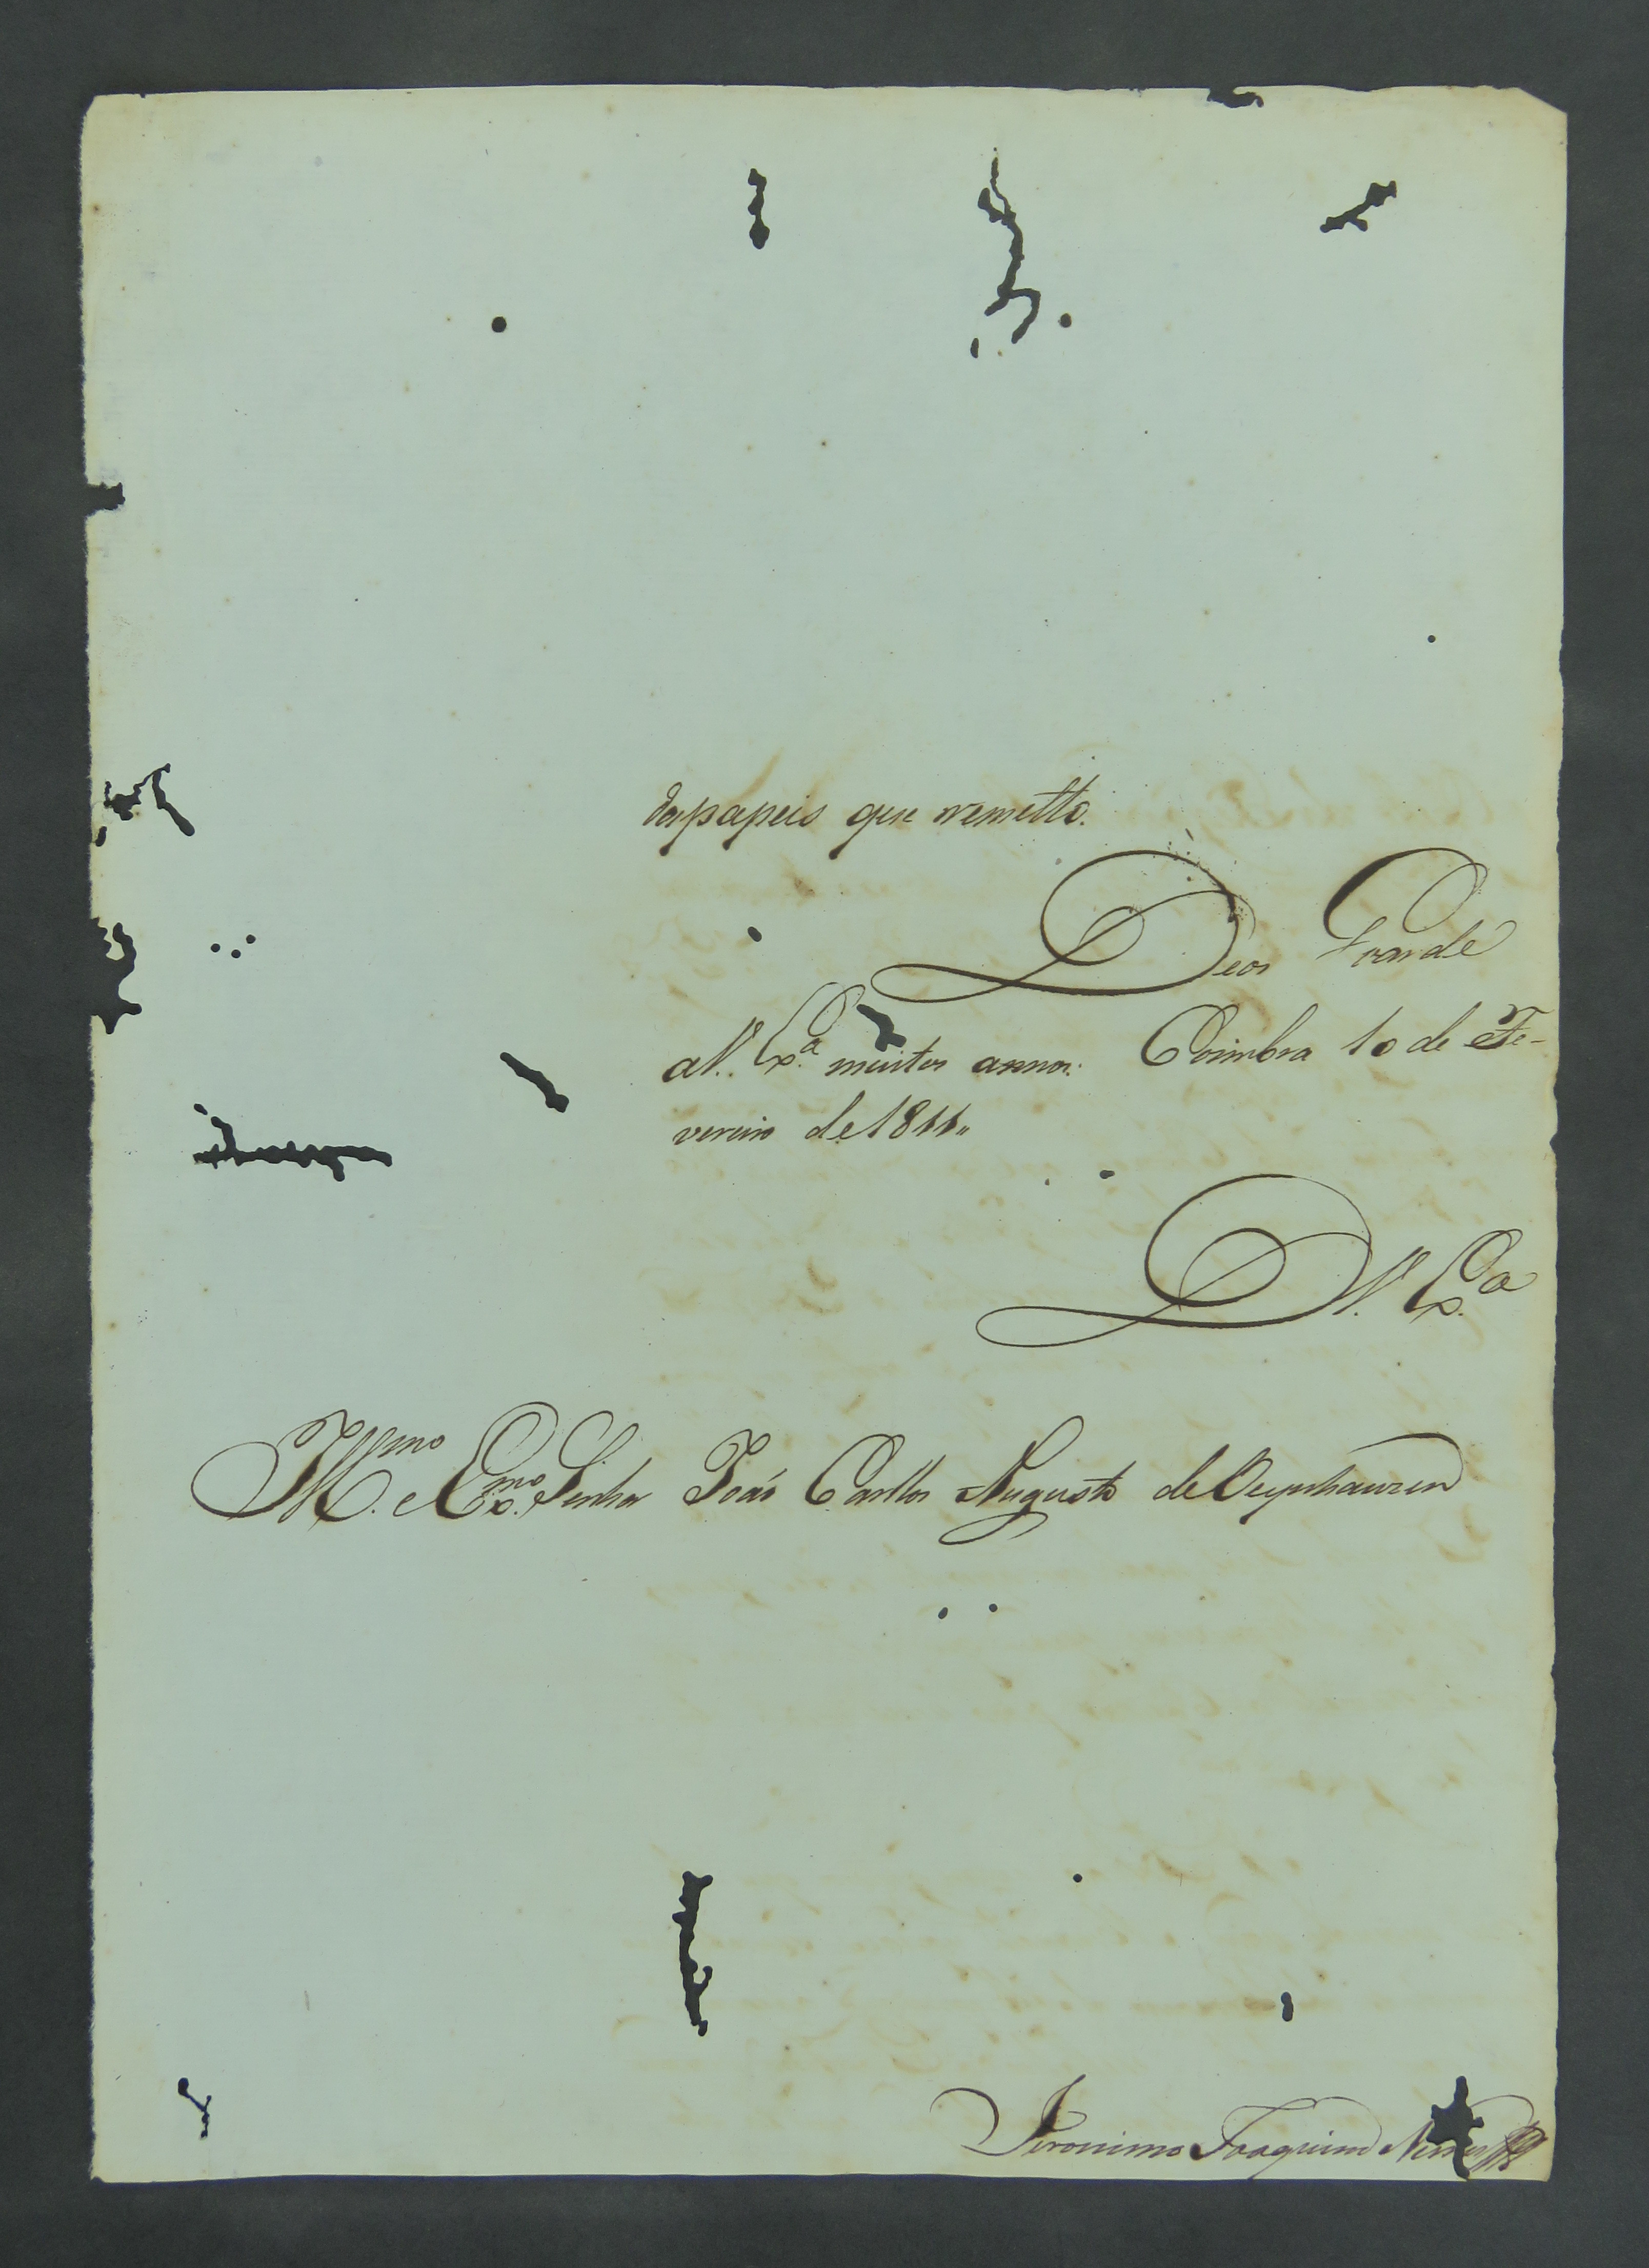 dos papeis que remetto.
Deos Guarde
a V. Ex.ª muitos annos. Coimbra 10 de Fe-
vereiro de 1811,,
D V. Ex.ª
Ill.mo e Ex.mo Senhor João Carllos Augusto de Oeynhauzen
Jeronimo Joaquim Nunes